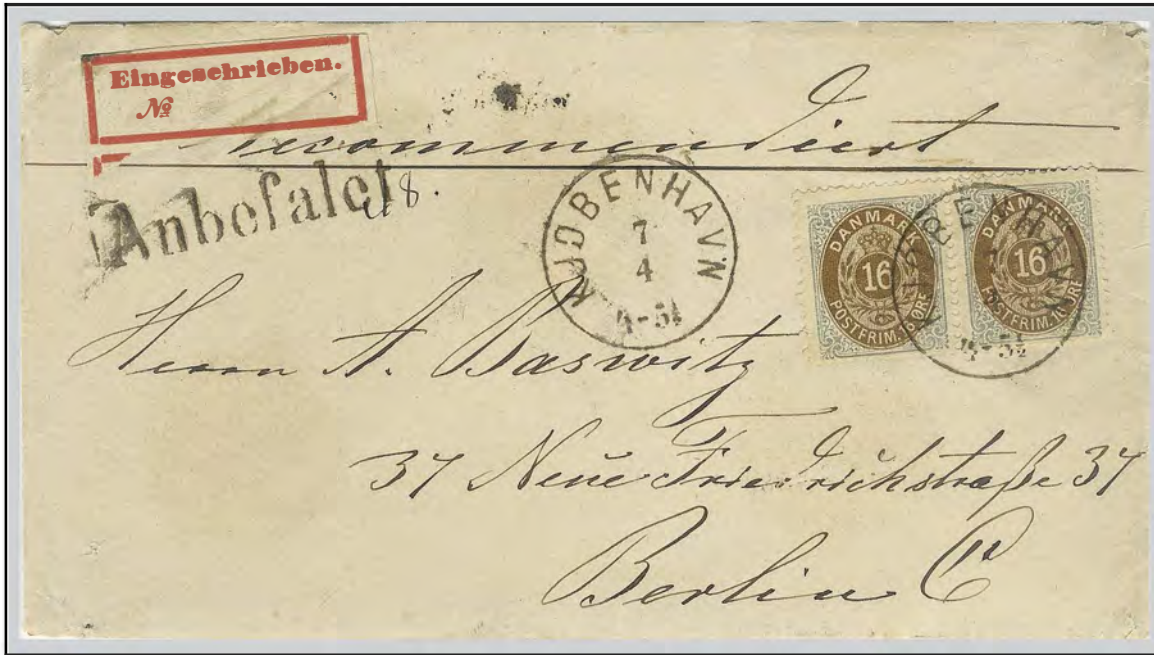 Eingeschrieben.
№
recommendirt
Anbefalet
48.
KJØBENHAVN
7
4
4-5½
DANMARK
16
POSTFRIM. 16 ØRE
DANMARK
16
POSTFRIM. 16 ØRE
KJØBENHAVN
4-5½
Herrn A. Baswitz
37 Neue Friedrichstraße 37
Berlin C